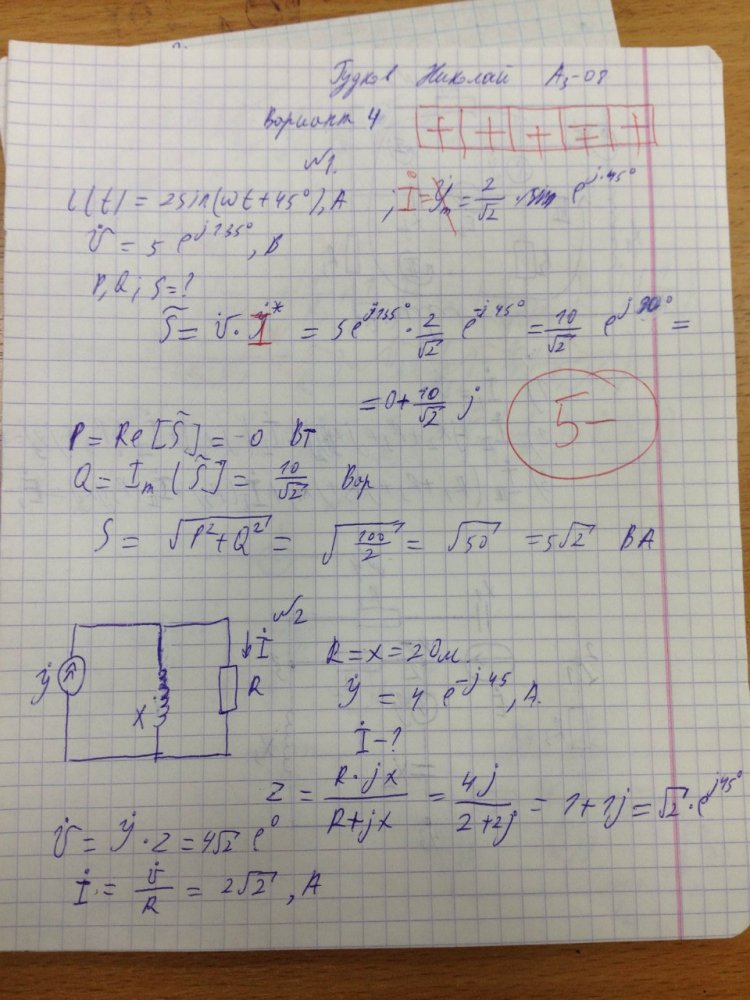 Гудков Николай Аз-08
Вариант 4
+ + + ∓ +
№1.
i(t) = 2sin(ωt+45°), A ; İ = = 2/√2 e^{j·45°}
U̇ = 5 e^{j135°}, В
P, Q, S = ?
S̃ = U̇ · İ* = 5e^{j135°} · 2/√2 e^{-j45°} = 10/√2 e^{j90°} =
= 0 + 10/√2 j
5-
P = Re [S̃] = 0 Вт
Q = Im [S̃] = 10/√2 Вар
S = √(P²+Q²) = √(100/2) = √50 = 5√2 ВА
№2
J̇ X İ R
R = X = 2 Ом.
J̇ = 4 e^{-j45}, A.
İ - ?
Z = R·jX / R+jX = 4j / 2+2j = 1+1j = √2·e^{j45°}
U̇ = J̇ · Z = 4√2 e^{0}
İ = U̇/R = 2√2, A